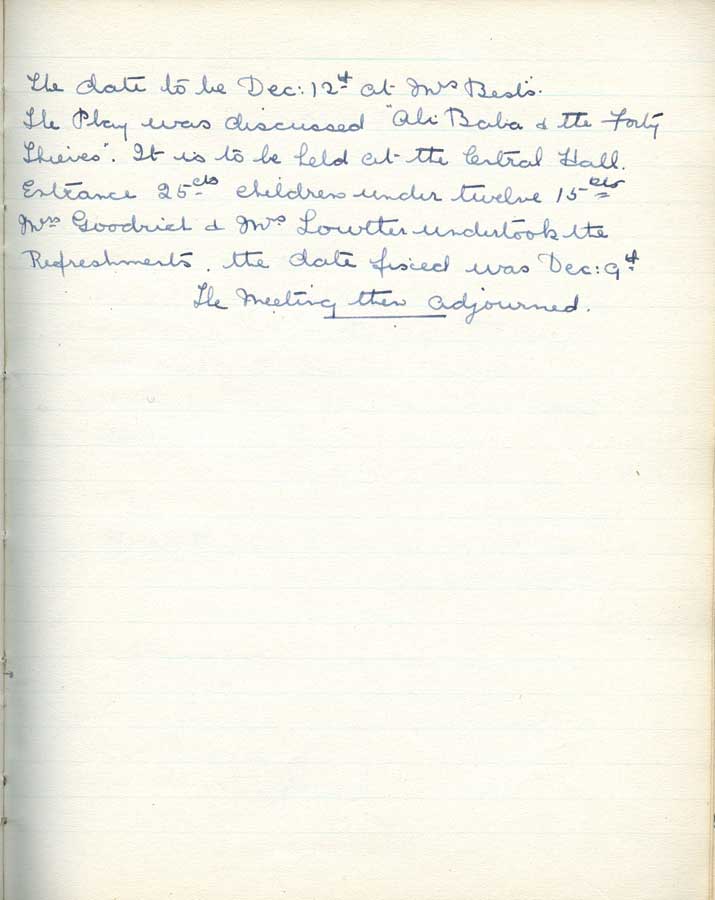 The date to be Dec: 12th at Mrs Bests.
The Play was discussed "Ali Baba & the Forty
Thieves". It is to be held at the Central Hall.
Entrance 25cts children under twelve 15cts
Mrs Goodrich & Mrs Lowther undertook the
Refreshments. the date fixed was Dec: 9th
The Meeting then adjourned.